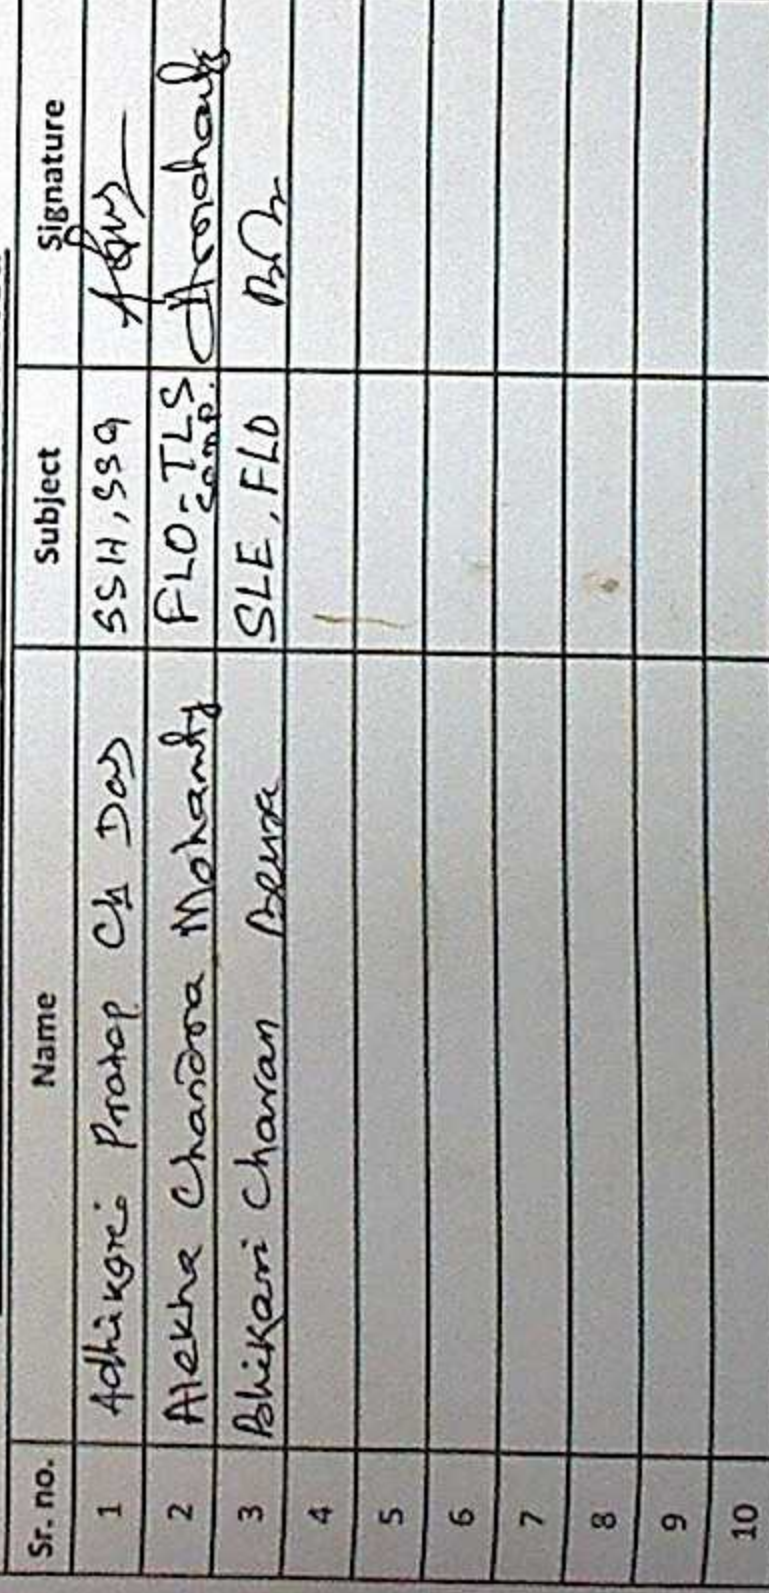 Sr. no. Name Subject Signature
1 Adhikari Pratap Ch Das SSH, SSG
2 Alekha Chandra Mohanty FLO-TLS comp.
3 Bhikari Charan Beura SLE, FLO
4
5
6
7
8
9
10